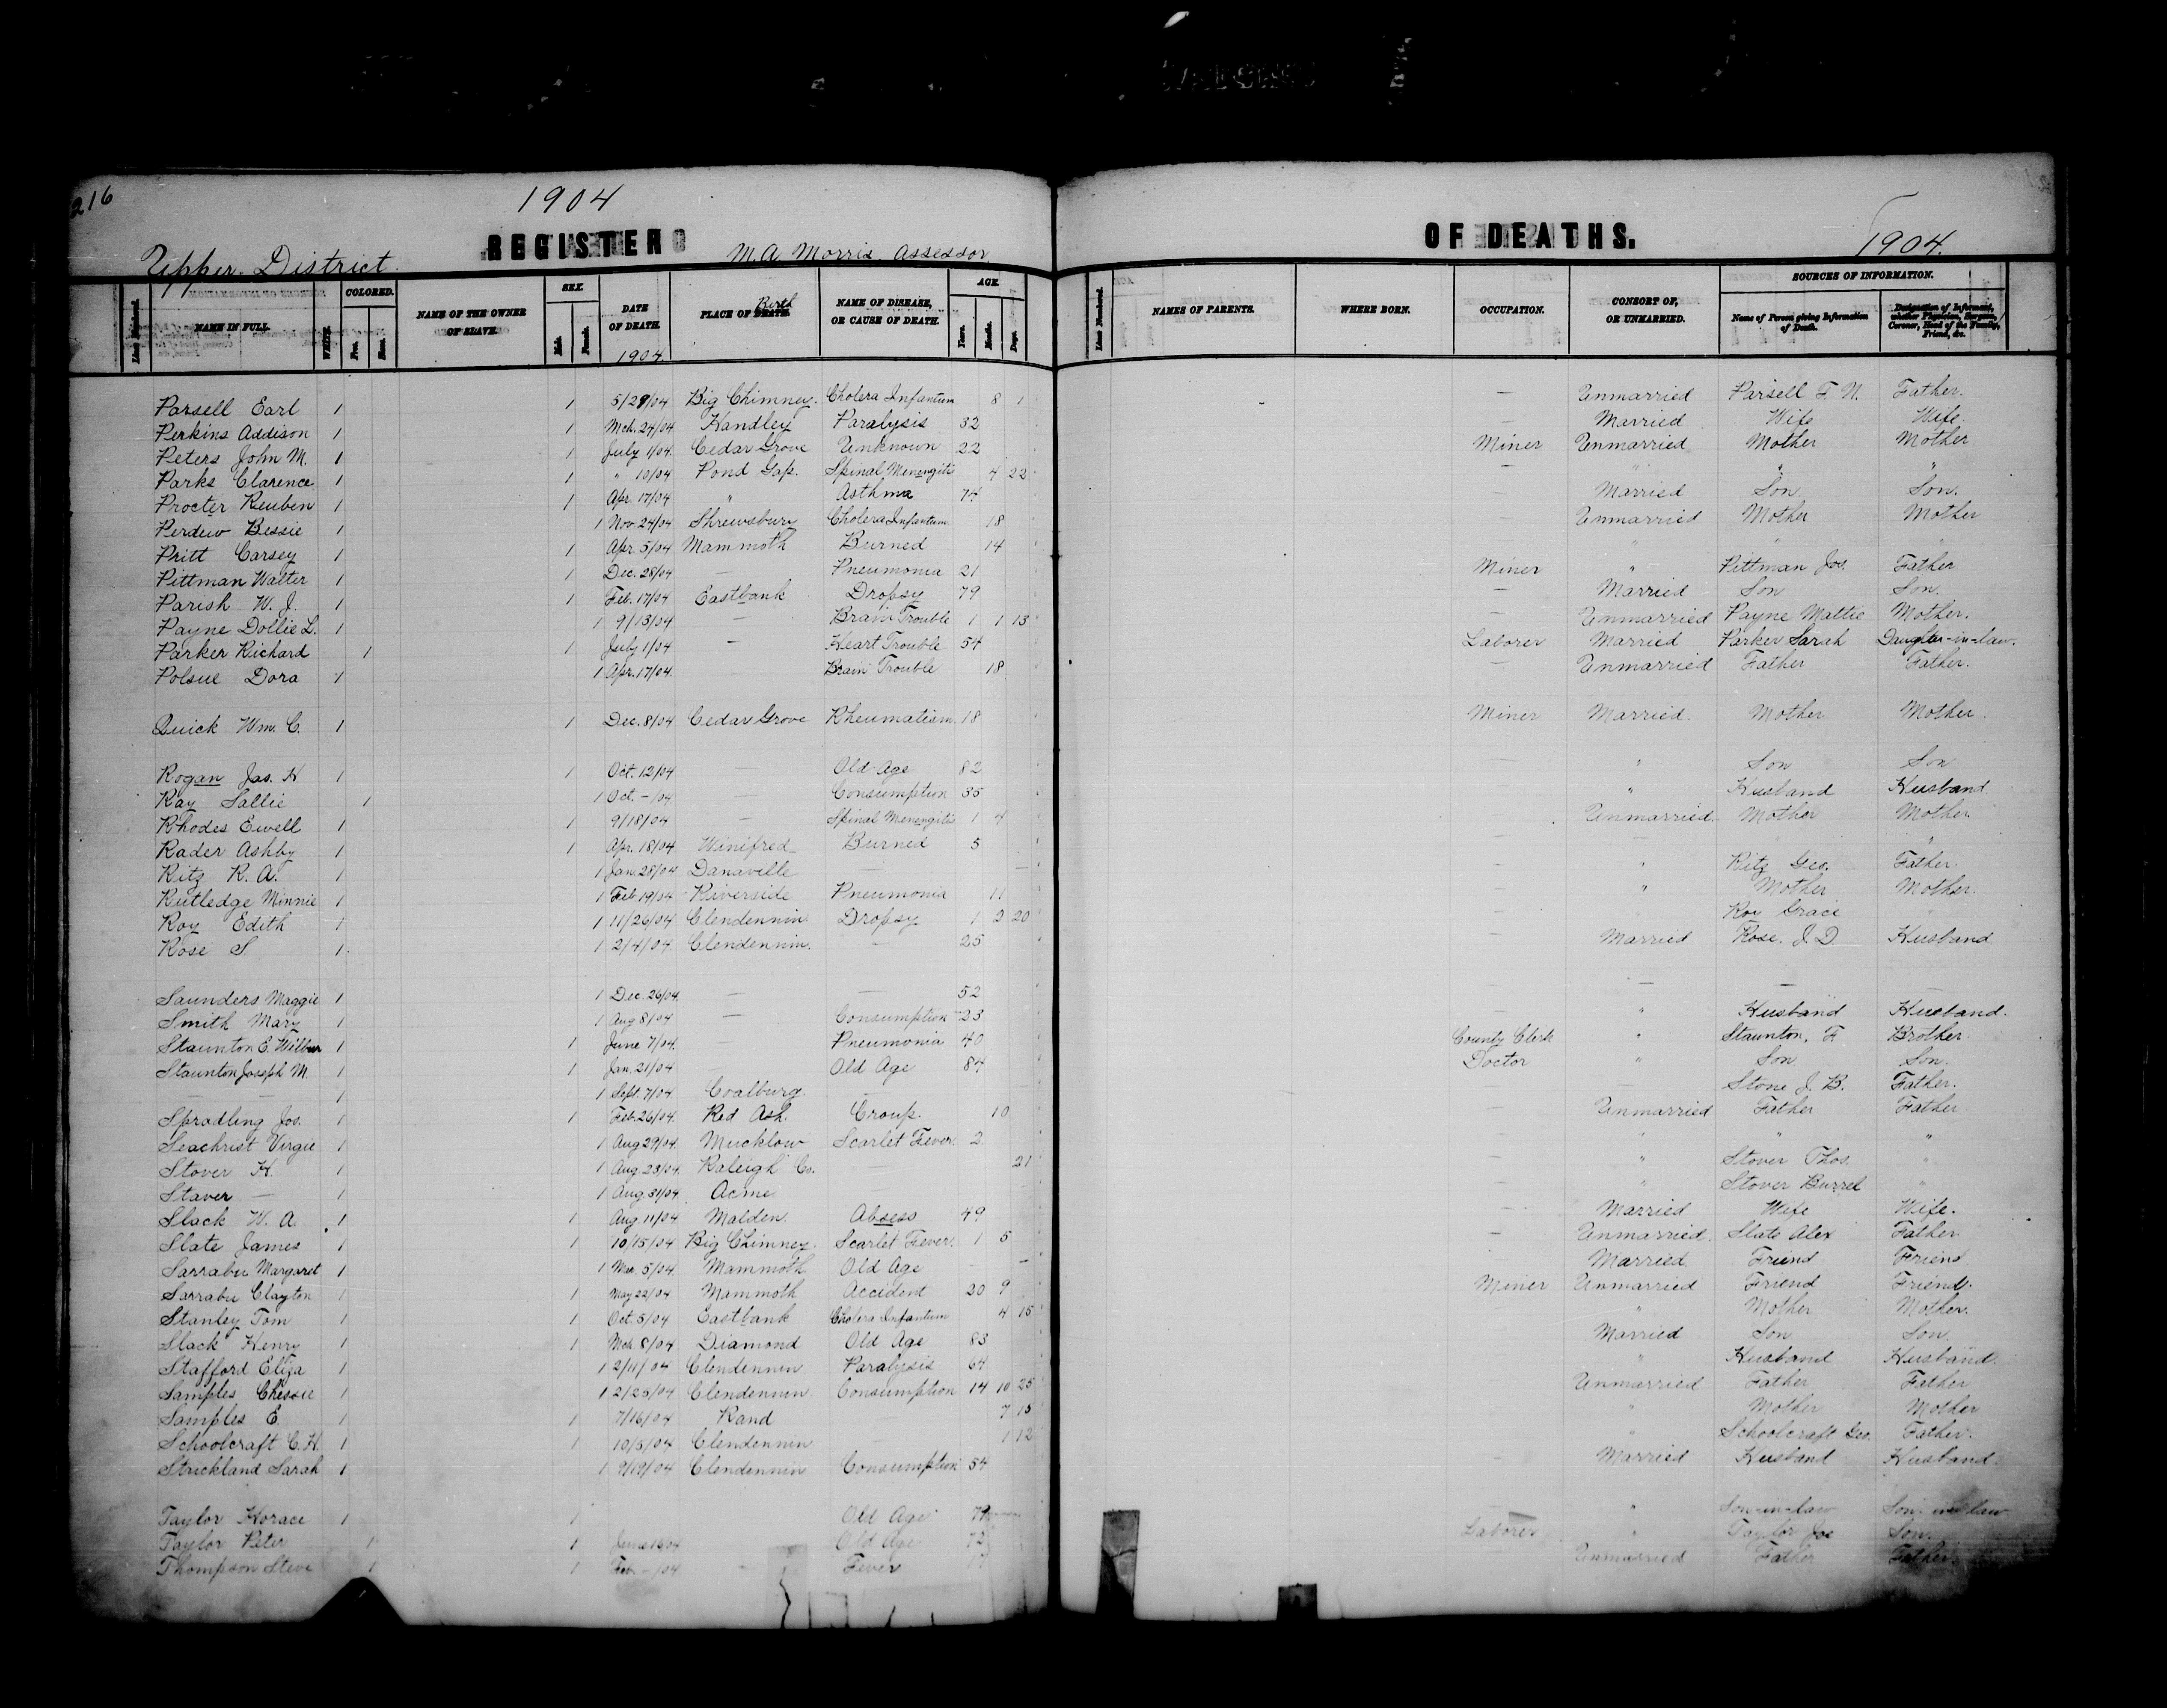 216
1904
REGISTER OF DEATHS.
1904.
Upper District. M.A. Morris Assessor
Line Numbered. NAME IN FULL. WHITE. COLORED. Free. Slave. NAME OF THE OWNER OF SLAVE. SEX. Male. Female. DATE OF DEATH. 1904. PLACE OF DEATH. Birth NAME OF DISEASE, OR CAUSE OF DEATH. AGE. Years. Months. Days. Line Numbered. NAMES OF PARENTS. WHERE BORN. OCCUPATION. CONSORT OF, OR UNMARRIED. SOURCES OF INFORMATION. Name of Person giving Information of Death. Designation of Informant, whether Physician, Surgeon, Coroner, Head of the Family, Friend, &c.
Parsell Earl 1 1 5/29/04 Big Chimney. Cholera Infantum 8 1 — Unmarried Parsell F. N. Father.
Perkins Addison 1 1 Mch. 24/04 Handley Paralysis 32 — Married Wife Wife
Peters John M. 1 1 July 1/04. Cedar Grove Unknown 22 Miner Unmarried Mother Mother
Parks Clarence 1 1 " 10/04 Pond Gap. Spinal Menengitis 4 22 — " " "
Procter Reuben 1 1 Apr. 17/04 " Asthma 74 — Married Son Son.
Perdew Bessie 1 1 Nov 24/04 Shrewsbury Cholera Infantum 18 — Unmarried Mother Mother
Pritt Carsey 1 1 Apr. 5/04 Mammoth Burned 14 — " " "
Pittman Walter 1 1 Dec. 28/04 — Pneumonia 21 Miner " Pittman Jos. Father
Parish W. J. 1 1 Feb. 17/04 Eastbank Dropsy 79 — Married Son Son.
Payne Dollie L. 1 1 9/13/04 — Brain Trouble 1 1 13 — Unmarried Payne Mattie Mother.
Parker Richard 1 1 July 1/04 — Heart Trouble 54 Laborer Married Parker Sarah Daughter-in-law.
Polsue Dora 1 1 Apr. 17/04. — Brain Trouble 18 — Unmarried Father Father.
Quick Wm. C. 1 1 Dec. 8/04 Cedar Grove Rheumatism 18 Miner Married Mother Mother.
Rogan Jas. H 1 1 Oct. 12/04 — Old Age 82 — " Son Son
Ray Sallie 1 1 Oct. — /04 — Consumption 35 — " Husband Husband
Rhodes Ewell 1 1 9/18/04 — Spinal Menengitis 1 4 — Unmarried. Mother Mother
Rader Ashby 1 1 Apr. 18/04 Winifred Burned 5 — — "
Ritz R. A. 1 1 Jan. 28/04 Danaville — — — " Ritz Geo. Father.
Rutledge Minnie 1 1 Feb 19/04 Riverside Pneumonia 11 — " Mother Mother.
Roy Edith 1 1 11/26/04 Clendennin Dropsy 1 2 20 — Roy Grace "
Rose S 1 1 2/4/04 Clendennin. — 25 — Married Rose. J. D Husband
Saunders Maggie 1 1 Dec. 26/04. — — 52 — — —
Smith Mary 1 1 Aug 8/04 — Consumption 23 — " Husband Husband.
Staunton E. Wilbur 1 1 June 7/04. — Pneumonia 40 County Clerk " Staunton, F. Brother
Staunton Joseph M. 1 1 Jan. 21/04 — Old Age 84 Doctor " Son. Son.
— — 1 1 Sept. 7/04 Coalburg. — — Stone J. B. Father.
Spradling Jos. 1 1 Feb. 26/04. Red Ash. Croup. 10 — Unmarried Father Father
Seachrist Virgie 1 1 Aug 29/04. Mucklow Scarlet Fever. 2 — " " "
Stover H. 1 1 Aug. 23/04. Raleigh Co. — 21 — " Stover Thos. "
Staver — 1 1 Aug 31/04 Acme — — " Stover Burrel "
Slack W. A. 1 1 Aug. 11/04 Malden. Absess 49 — Married Wife Wife.
Slate James 1 1 10/15/04 Big Chimney. Scarlet Fever. 1 5 — Unmarried. Slate Alex Father
Sarrabu Margaret 1 1 Mar. 5/04. Mammoth Old Age — — Married Friend Friend
Sarrabu Clayton 1 1 May 22/04 Mammoth Accident 20 9 Miner Unmarried Friend Friend.
Stanley Tom 1 1 Oct. 5/04 Eastbank Cholera Infantum 4 15 — " Mother Mother.
Slack Henry 1 1 Mch. 8/04 Diamond Old Age 83 — Married Son Son.
Stafford Eliza 1 1 2/11/04 Clendennin Paralysis 64 — " Husband Husband.
Samples Chessie 1 1 2/25/04 Clendennin Consumption 14 10 25 — Unmarried Father Father
Samples E. 1 1 7/16/04 Rand 7 15 — " Mother Mother
Schoolcraft C. H. 1 1 10/5/04 Clendennin — 1 12 — " Schoolcraft Geo. Father.
Strickland Sarah 1 1 9/19/04 Clendennin Consumption 54 — Married Husband Husband.
Taylor Horace 1 1 Old Age — " Son-in-law Son-in-law
Taylor Peter 1 1 June Old Age 72 Laborer " Taylor Joe Son.
Thompson Steve 1 1 Feb. — /04 — Fever 17 Unmarried Father Father.